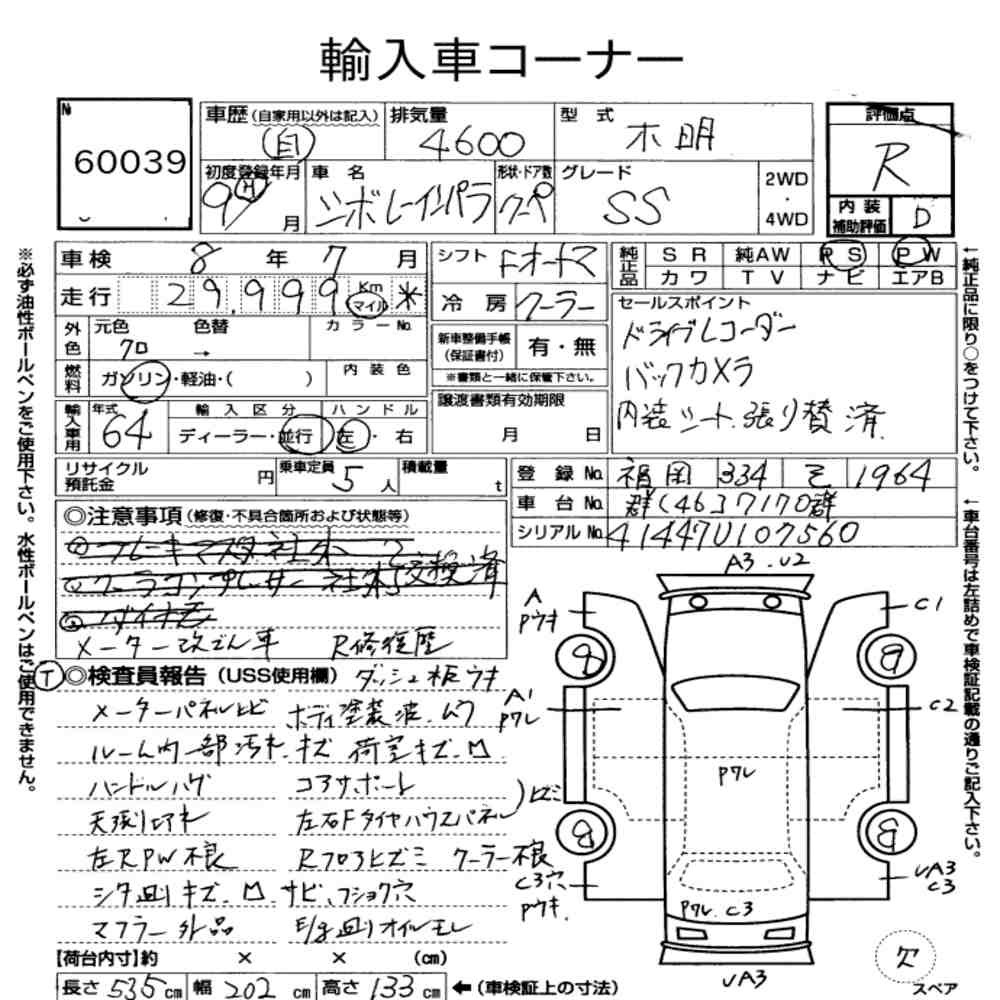 輸入車コーナー
№ 60039
車歴(自家用以外は記入) 自
排気量 4600
型式 不明
評価点 R
初度登録年月 9/ 月
車名 シボレーインパラ
形状・ドア数 クーペ
グレード SS
2WD・4WD
内装補助評価 D
車検 8年7月
シフト Fオートマ
純正品 SR 純AW PS PW
カワ TV ナビ エアB
走行 29,999 Km マイル *
冷房 クーラー
セールスポイント
ドライブレコーダー
バックカメラ
内装シート張り替済
外色 元色 クロ 色替 → カラーNo.
新車整備手帳(保証書付) 有・無
※書類と一緒に保管下さい。
燃料 ガソリン・軽油・( ) 内装色
譲渡書類有効期限 月 日
輸入車用 年式 64
輸入区分 ディーラー・並行
ハンドル 左・右
リサイクル預託金 円
乗車定員 5人
積載量 t
登録No. 福岡 334 1964
車台No. 群[46]7170群
シリアルNo. 41447U107560
◎注意事項(修復・不具合箇所および状態等)
① ブレーキマスター社外
② クーラーコンプレッサー社外交換済
③ ダイナモ
メーター改ざん車 R修復歴
◎検査員報告(USS使用欄) ダッシュ板ウキ
メーターパネルヒビ ボディ塗装波.ムラ
ルーム内一部汚れ.キズ 荷室キズ.凹
ハンドルハゲ コアサポート
天張り切れ 左右Fタイヤハウスパネル
左RPW不良 Rフロアヒズミ クーラー不良
シタ廻りキズ.凹 サビ.フショク穴
マフラー外品 E/g廻りオイルモレ
【荷台内寸】約 × × (cm)
長さ 535cm 幅 202cm 高さ 133cm ←(車検証上の寸法)
A3.U2
A Pウキ
C1
8
8
A1 Pワレ
C2
Pワレ
8
8
C3穴 Pウキ.
UA3 C3
Pワレ.C3
UA3
欠
スペア
※必ず油性ボールペンをご使用下さい。水性ボールペンはご使用できません。
←純正品に限り○をつけて下さい。
←車台番号は左詰めで車検証記載の通りご記入下さい。